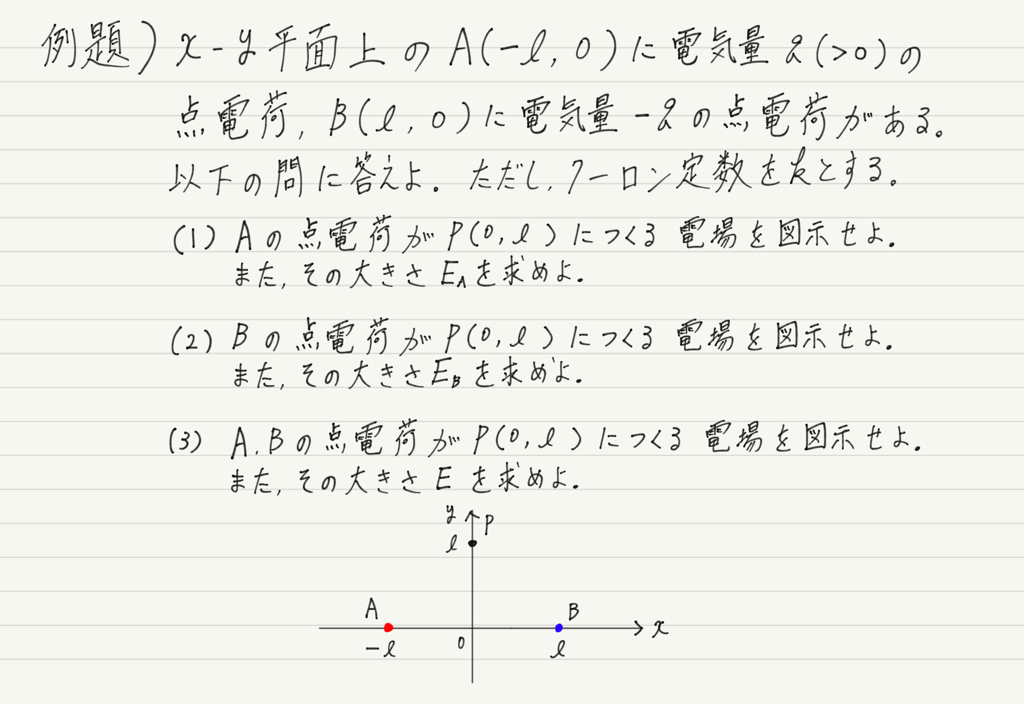 例題) x-y平面上のA(-l, 0)に電気量q(>0)の
点電荷, B(l, 0)に電気量-qの点電荷がある。
以下の問に答えよ. ただし, クーロン定数をkとする。
(1) Aの点電荷がP(0, l)につくる電場を図示せよ.
また, その大きさEAを求めよ.
(2) Bの点電荷がP(0, l)につくる電場を図示せよ.
また, その大きさEBを求めよ.
(3) A, Bの点電荷がP(0, l)につくる電場を図示せよ.
また, その大きさEを求めよ.
y P
l
A B
0 x
-l l